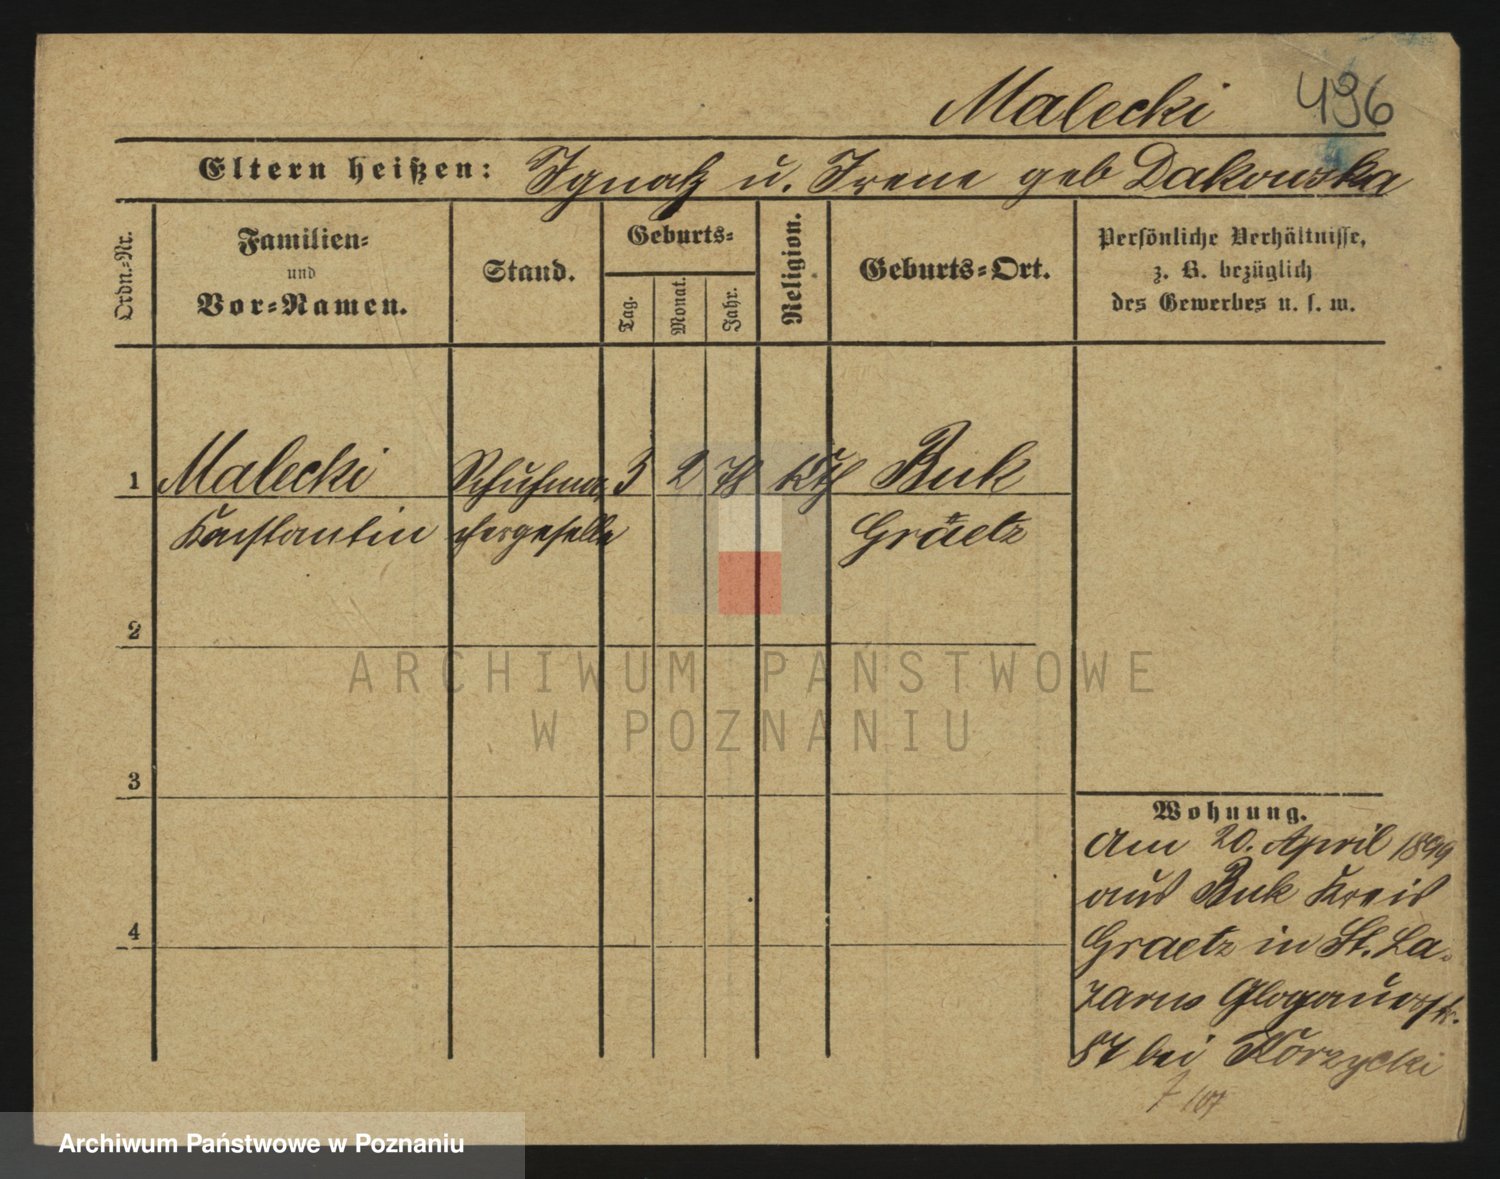 Malecki 496
Eltern heißen: Ignatz u. Irene geb Dakowska
Ordn.-Nr.
Familien-
und
Vor-Namen.
Stand.
Geburts-
Tag.
Monat.
Jahr.
Religion.
Geburts-Ort.
Persönliche Verhältnisse,
z. B. bezüglich
des Gewerbes u. s. w.
1 Malecki Schuhma- 3 2 78 Kth Buk
Konstantin chergeselle Graetz
2
3
4
Wohnung.
Am 20. April 1899
aus Buk Kreis
Graetz in St. La-
zarus Glogauerstr.
87 bei Korzycki
ARCHIWUM PAŃSTWOWE
W POZNANIU
Archiwum Państwowe w Poznaniu